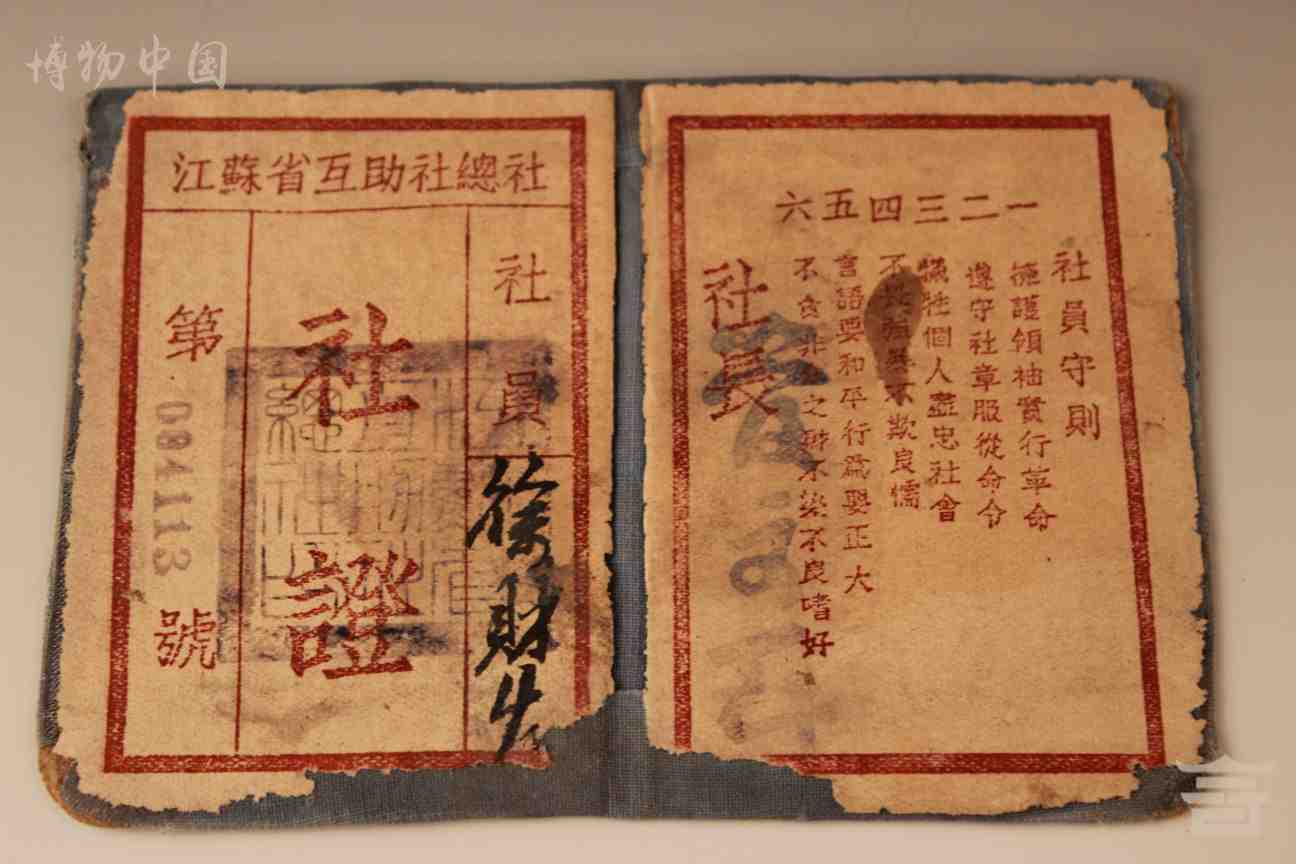 博物中国
江蘇省互助社總社
社員 徐財生
社證
第0841113號
社員守則
一 擁護領袖實行革命
二 遵守社章服從命令
三 犧牲個人盡忠社會
四 不強不欺良懦
五 言語要和平行為要正大
六 不貪非之財不染不良嗜好
社長